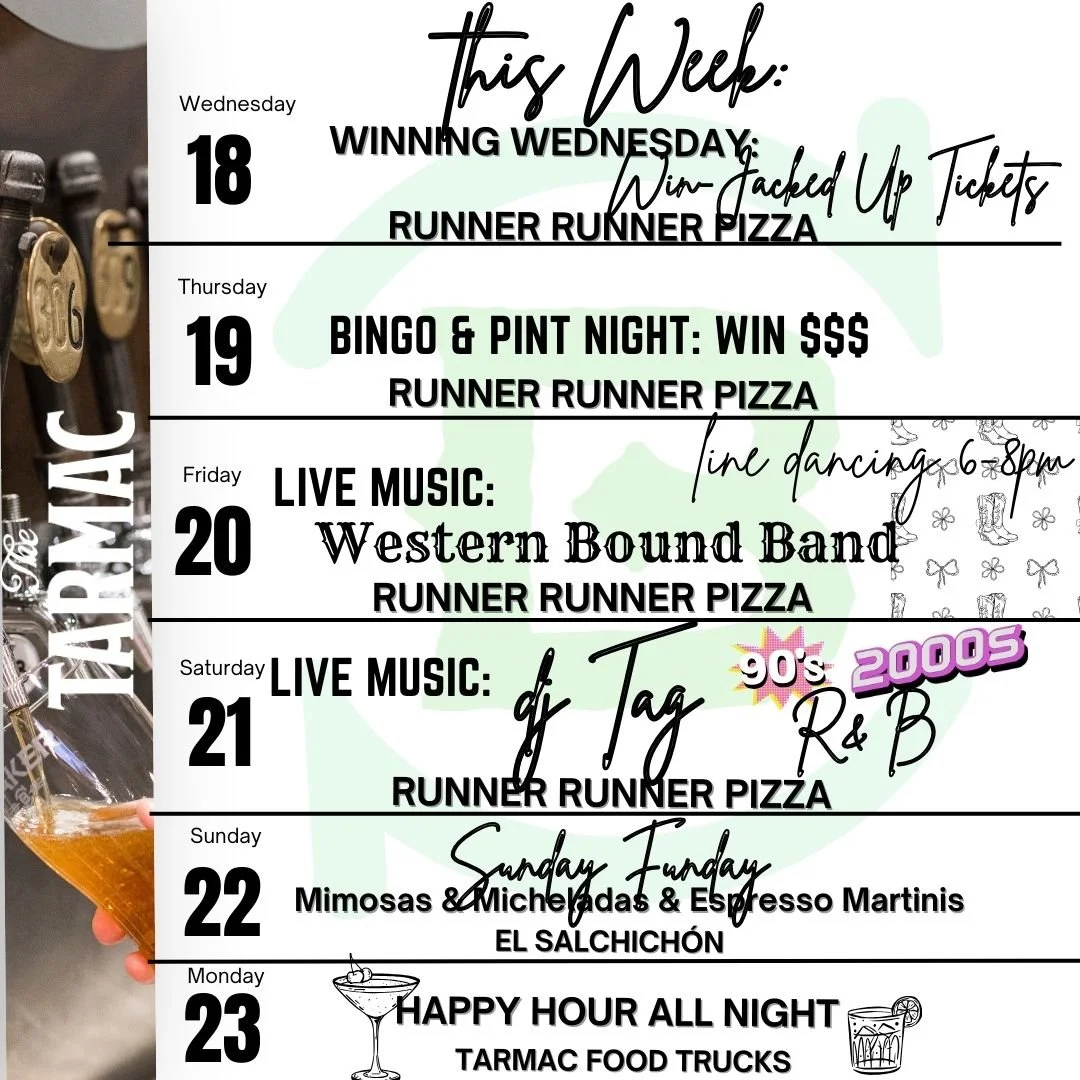 This Week:
Wednesday
18
WINNING WEDNESDAY:
Win Jacked Up Tickets
RUNNER RUNNER PIZZA
Thursday
19
BINGO & PINT NIGHT: WIN $$$
RUNNER RUNNER PIZZA
Friday
20
line dancing 6-8pm
LIVE MUSIC:
Western Bound Band
RUNNER RUNNER PIZZA
Saturday
21
LIVE MUSIC:
dj Tag
90's 2000s
R&B
RUNNER RUNNER PIZZA
Sunday
22
Sunday Funday
Mimosas & Micheladas & Espresso Martinis
EL SALCHICHÓN
Monday
23
HAPPY HOUR ALL NIGHT
TARMAC FOOD TRUCKS
The
TARMAC
306
B